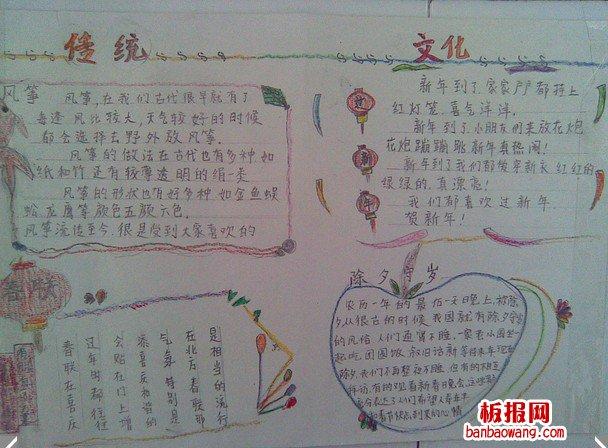 传统
文化
风筝
风筝,在我们古代很早就有了
每逢风比较大,天气较好的时候
都会选择去野外放风筝.
风筝的做法在古代也有多种如
纸和竹还有较薄透明的绢一类.
风筝的形状也有好多种如金鱼蜈
蚣龙鹰等颜色五颜六色.
风筝流传至今.很是受到大家喜欢的
过
新
年
新年到了家家户户都挂上
红灯笼.喜气洋洋.
新年到了小朋友们来放花炮
花炮蹦蹦跳新年真热闹!
新年到了我们都爱穿新衣红红的
绿绿的.真漂亮!
我们都喜欢过新年.
贺新年!
春联
春联在喜庆
过年时都往往
会贴在门上增
添喜庆和谐的
气氛特别是
在北方春联那
是相当的流行
除夕守岁
农历一年的最后一天晚上,被除
夕从很古的时候我国就有除夕守岁
的风俗人们通宵不睡,一家老小围坐一
起吃团圆饭叙旧话新
板报网
banbaowang.com